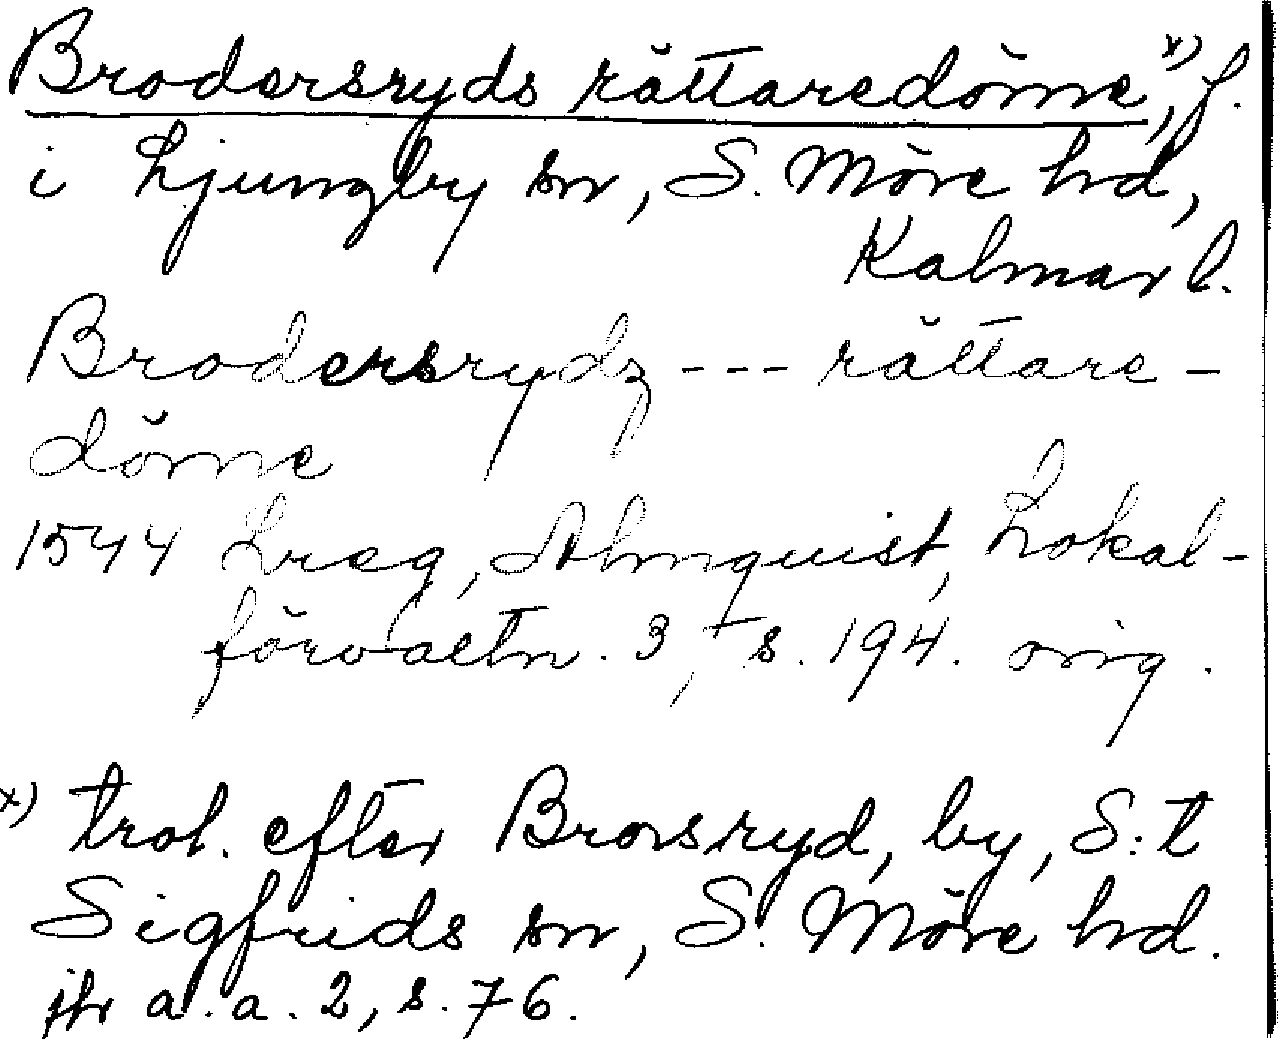 Brodersryds rättaredöme,ˣ⁾ f.
i Ljungby sn, S. Möre hd,
Kalmar l.
Brodersrydz --- rättare-
döme
1544 Lreg, Almquist, Lokal-
förvaltn. 3, s. 194. orig.
x) trol. efter Brorsryd, by, S:t
Sigfrids sn, S. Möre hd.
jfr a. a. 2, s. 76.